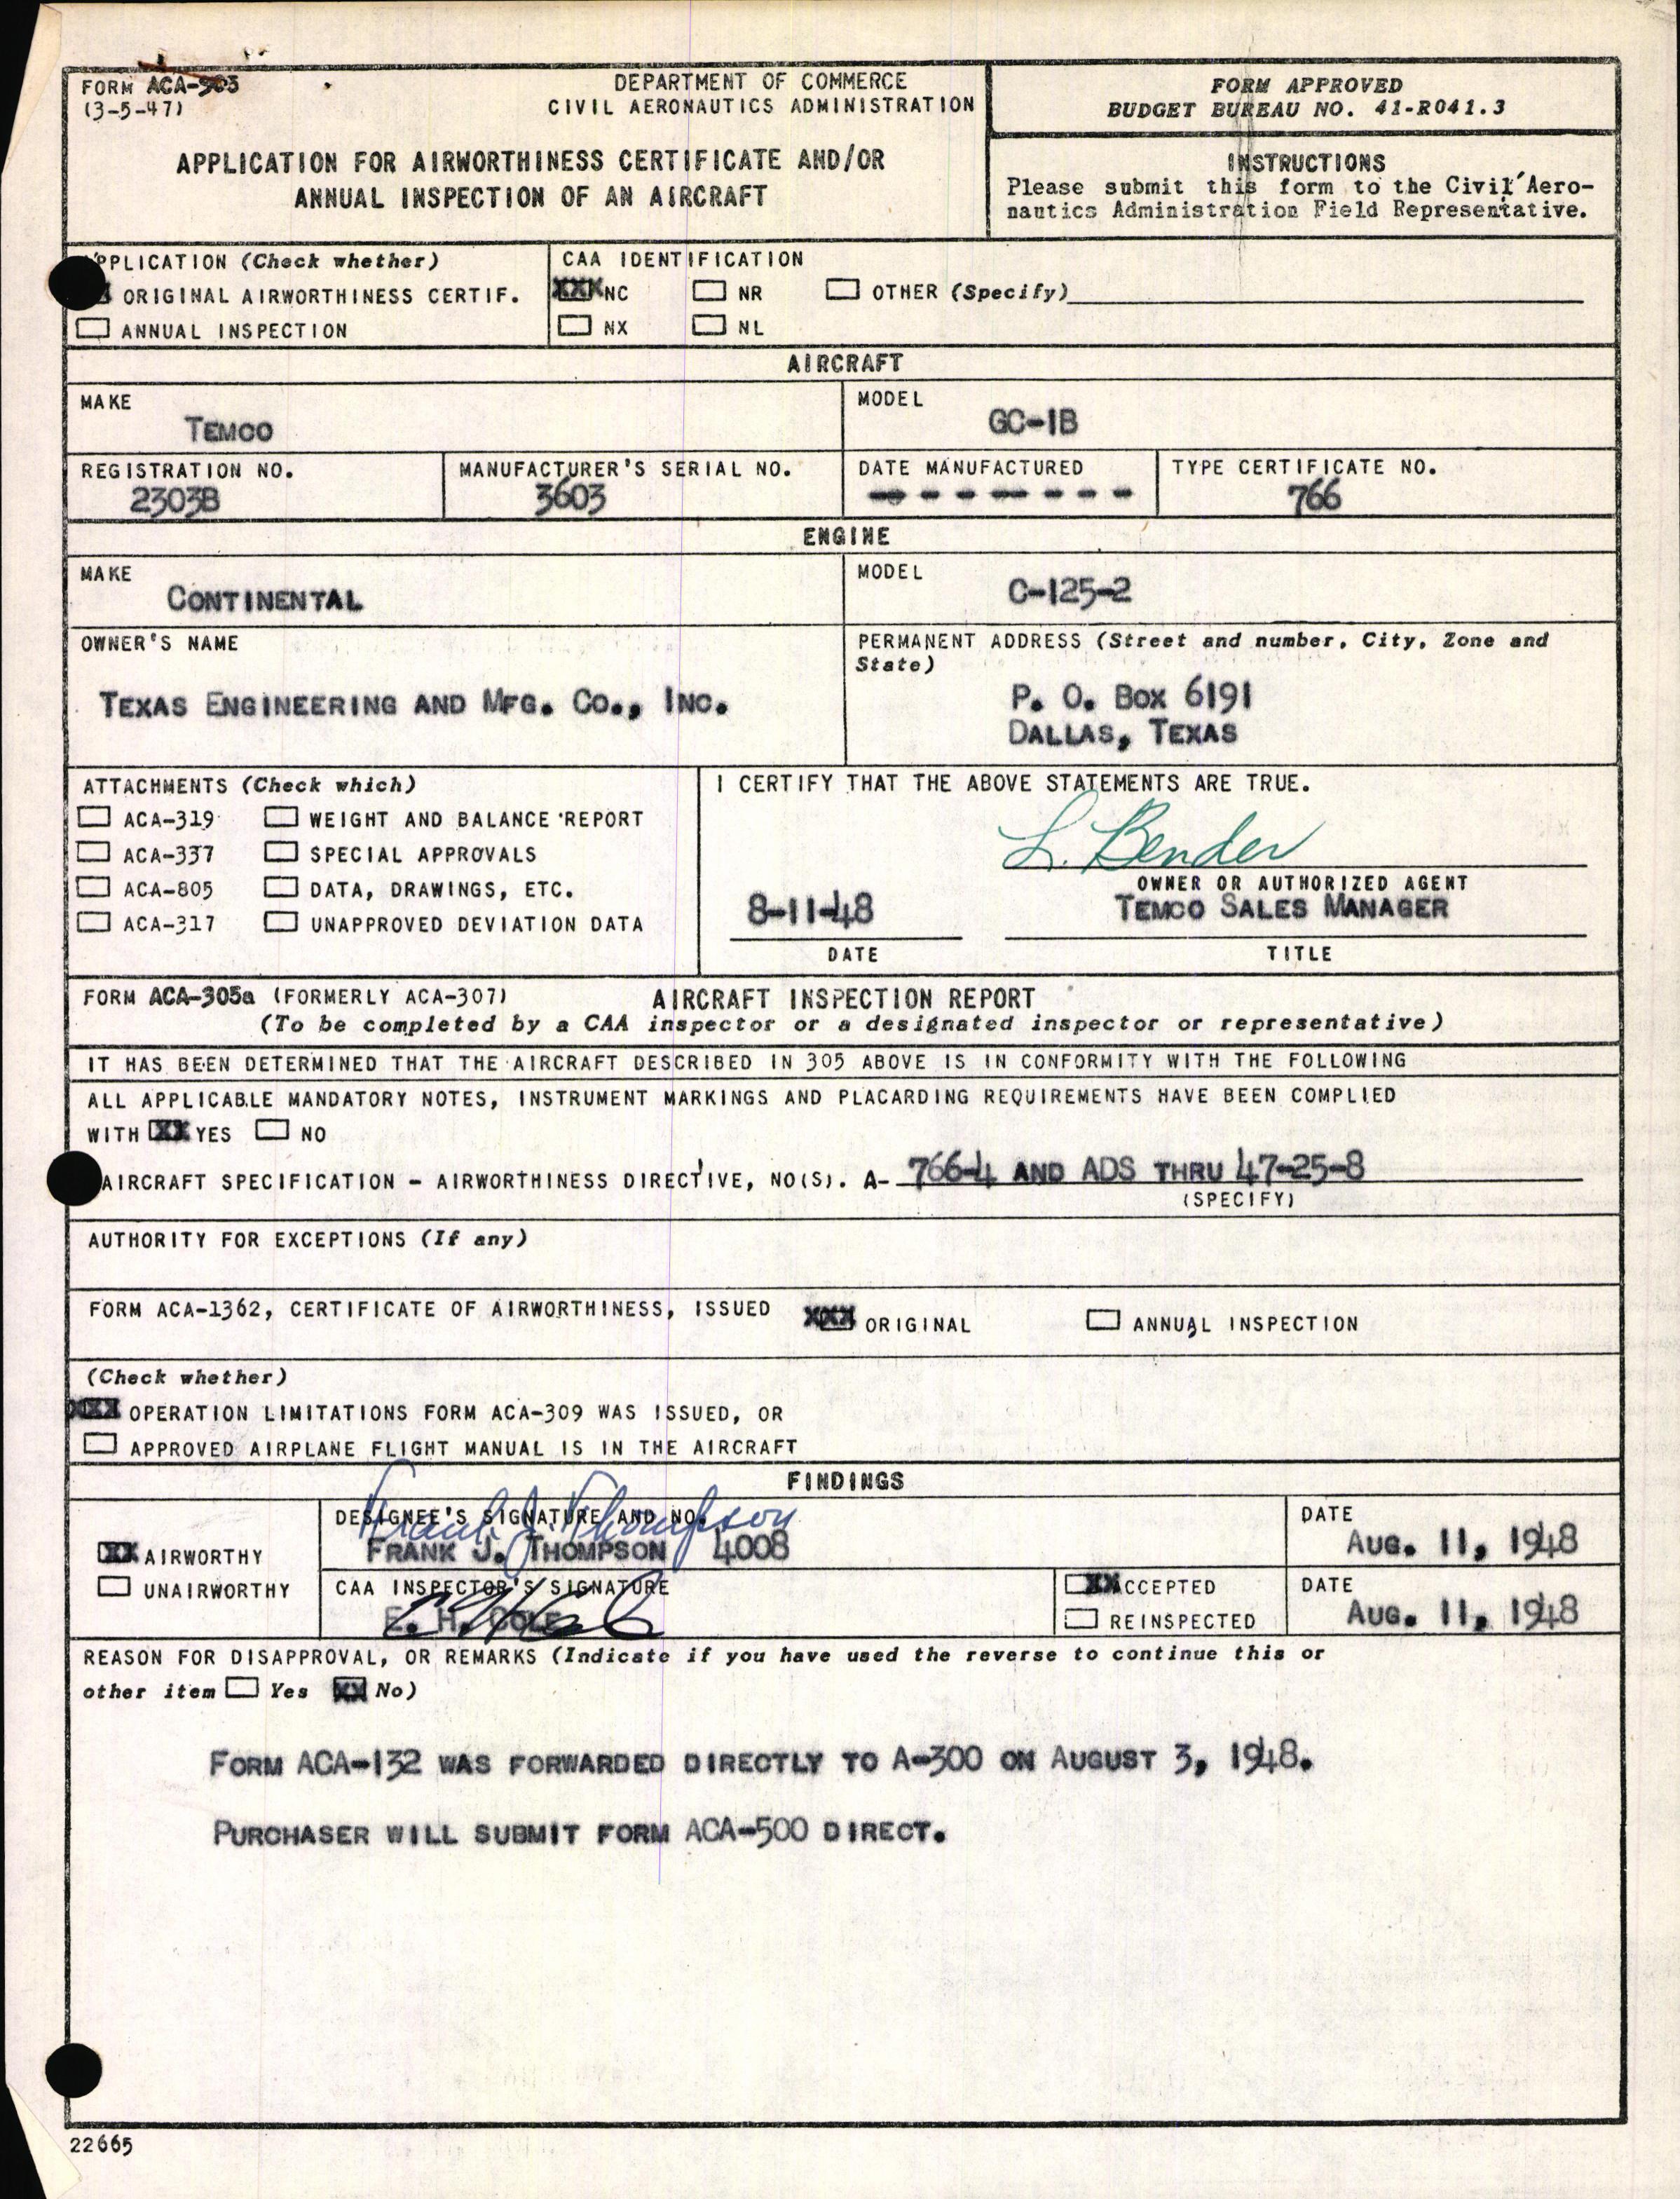 FORM ACA-305
(3-5-47)
DEPARTMENT OF COMMERCE
CIVIL AERONAUTICS ADMINISTRATION
APPLICATION FOR AIRWORTHINESS CERTIFICATE AND/OR
ANNUAL INSPECTION OF AN AIRCRAFT
FORM APPROVED
BUDGET BUREAU NO. 41-R041.3
INSTRUCTIONS
Please submit this form to the Civil Aero-
nautics Administration Field Representative.
APPLICATION (Check whether)
ORIGINAL AIRWORTHINESS CERTIF.
ANNUAL INSPECTION
CAA IDENTIFICATION
XXX NC NR OTHER (Specify)
NX NL
AIRCRAFT
MAKE
TEMCO
MODEL
GC-1B
REGISTRATION NO.
2303B
MANUFACTURER'S SERIAL NO.
3603
DATE MANUFACTURED
- - - - - - - -
TYPE CERTIFICATE NO.
766
ENGINE
MAKE
CONTINENTAL
MODEL
C-125-2
OWNER'S NAME
TEXAS ENGINEERING AND MFG. CO., INC.
PERMANENT ADDRESS (Street and number, City, Zone and
State)
P. O. BOX 6191
DALLAS, TEXAS
ATTACHMENTS (Check which)
ACA-319 WEIGHT AND BALANCE REPORT
ACA-337 SPECIAL APPROVALS
ACA-805 DATA, DRAWINGS, ETC.
ACA-317 UNAPPROVED DEVIATION DATA
I CERTIFY THAT THE ABOVE STATEMENTS ARE TRUE.
L. Bender
OWNER OR AUTHORIZED AGENT
8-11-48 TEMCO SALES MANAGER
DATE TITLE
FORM ACA-305a (FORMERLY ACA-307) AIRCRAFT INSPECTION REPORT
(To be completed by a CAA inspector or a designated inspector or representative)
IT HAS BEEN DETERMINED THAT THE AIRCRAFT DESCRIBED IN 305 ABOVE IS IN CONFORMITY WITH THE FOLLOWING
ALL APPLICABLE MANDATORY NOTES, INSTRUMENT MARKINGS AND PLACARDING REQUIREMENTS HAVE BEEN COMPLIED
WITH XX YES NO
AIRCRAFT SPECIFICATION - AIRWORTHINESS DIRECTIVE, NO(S). A- 766-4 AND ADS THRU 47-25-8
(SPECIFY)
AUTHORITY FOR EXCEPTIONS (If any)
FORM ACA-1362, CERTIFICATE OF AIRWORTHINESS, ISSUED XXX ORIGINAL ANNUAL INSPECTION
(Check whether)
XXX OPERATION LIMITATIONS FORM ACA-309 WAS ISSUED, OR
APPROVED AIRPLANE FLIGHT MANUAL IS IN THE AIRCRAFT
FINDINGS
XX AIRWORTHY
UNAIRWORTHY
DESIGNEE'S SIGNATURE AND NO.
Frank J. Thompson
FRANK J. THOMPSON 4008
DATE
AUG. 11, 1948
CAA INSPECTOR'S SIGNATURE
E. H. COLE
XX ACCEPTED
REINSPECTED
DATE
AUG. 11, 1948
REASON FOR DISAPPROVAL, OR REMARKS (Indicate if you have used the reverse to continue this or
other item Yes XX No)
FORM ACA-132 WAS FORWARDED DIRECTLY TO A-300 ON AUGUST 3, 1948.
PURCHASER WILL SUBMIT FORM ACA-500 DIRECT.
22665